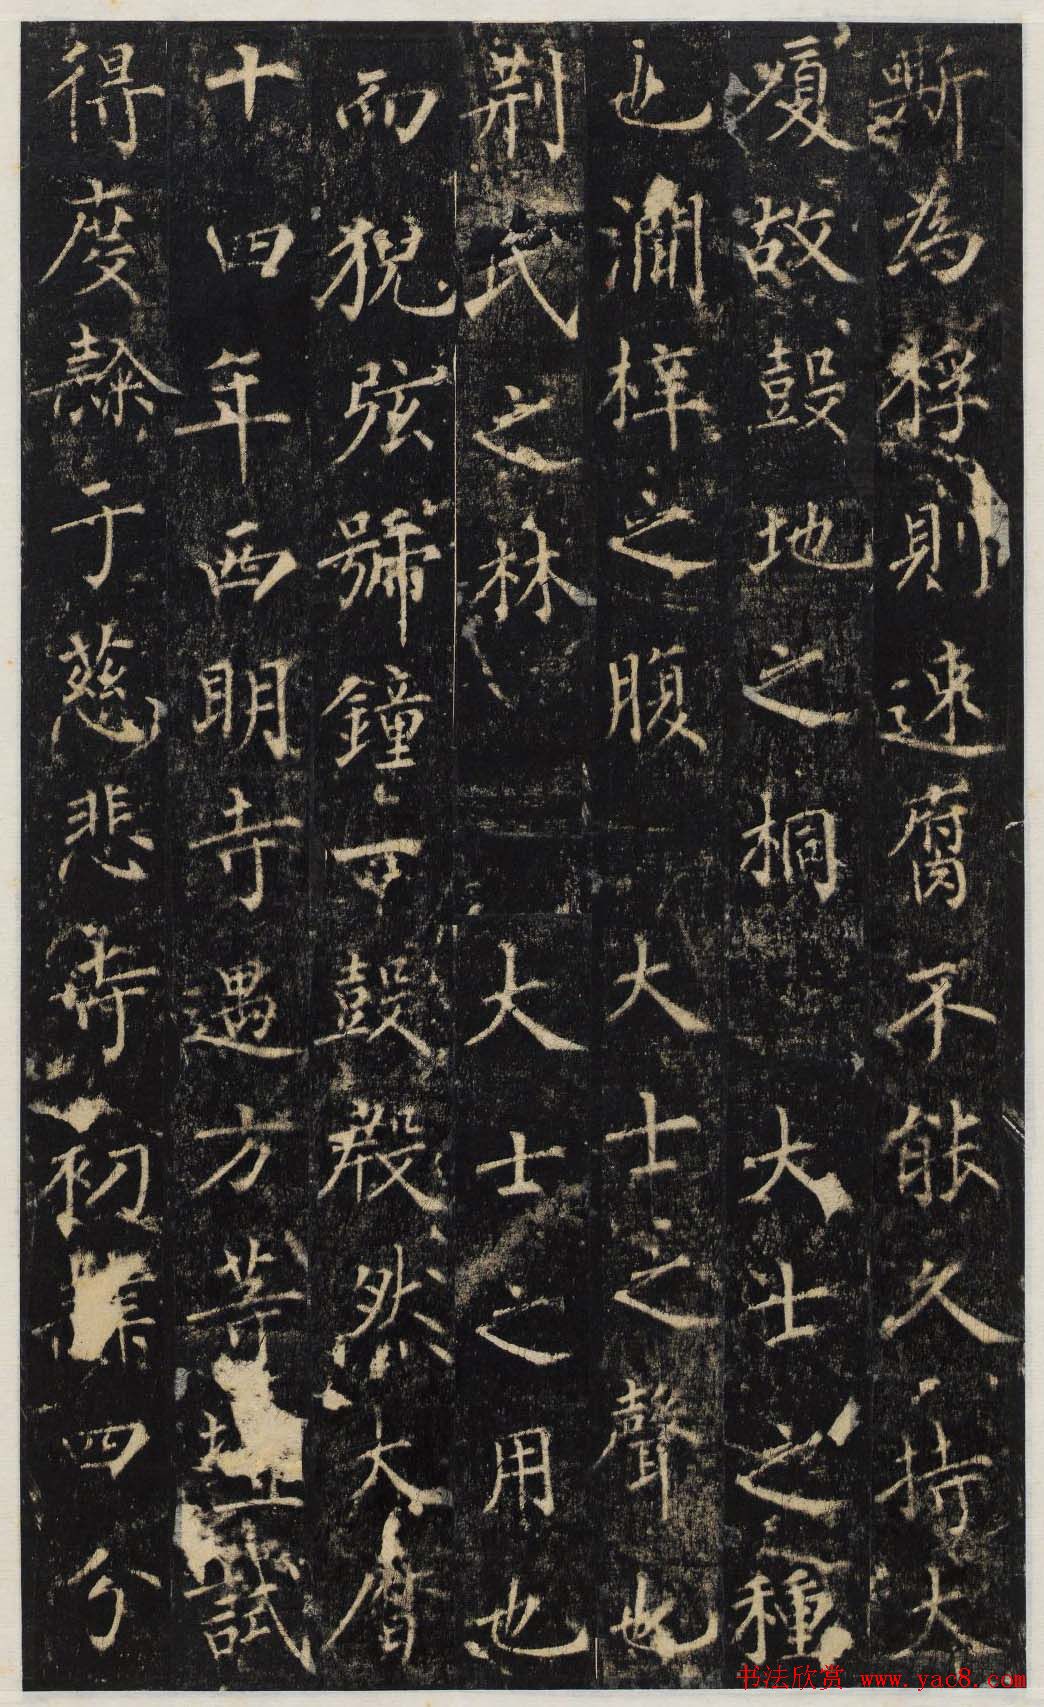 斲為桴則速腐不能久持大
廈故鼓地之桐大士之種
也澗梓之腹大士之聲也
荆氏之林大士之用也
而猊弦號鐘一鼓殷然大曆
十四年西明寺遇方等壇試
得度隸于慈悲寺初讲四分
书法欣赏 www.yac8.com